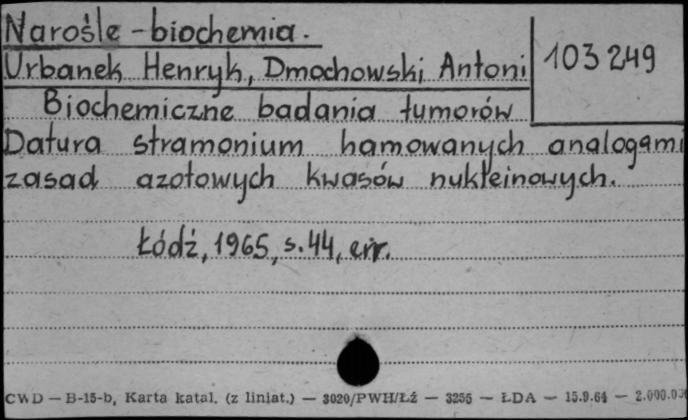 Narośle - biochemia.
Urbanek Henryk, Dmochowski Antoni
103 249
Biochemiczne badania tumorów
Datura stramonium hamowanych analogami
zasad azotowych kwasów nukleinowych.
Łódź, 1965, s. 44, err.
CWD — B-15-b, Karta katal. (z liniat.) — 3020/PWH/Łź — 3255 — ŁDA — 15.9.64 — 2.000.00